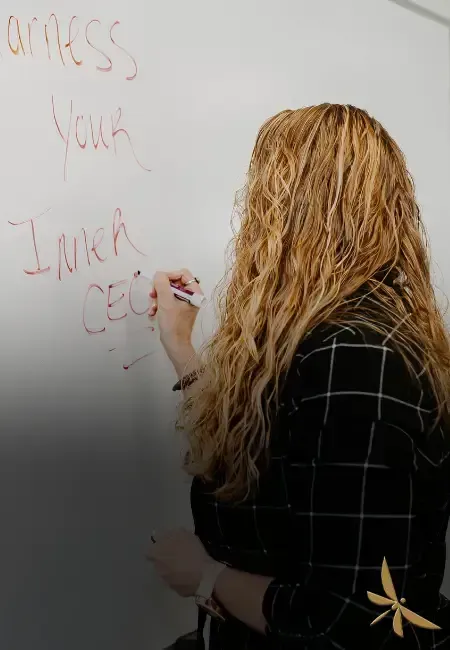 arness
Your
Inner
CEO